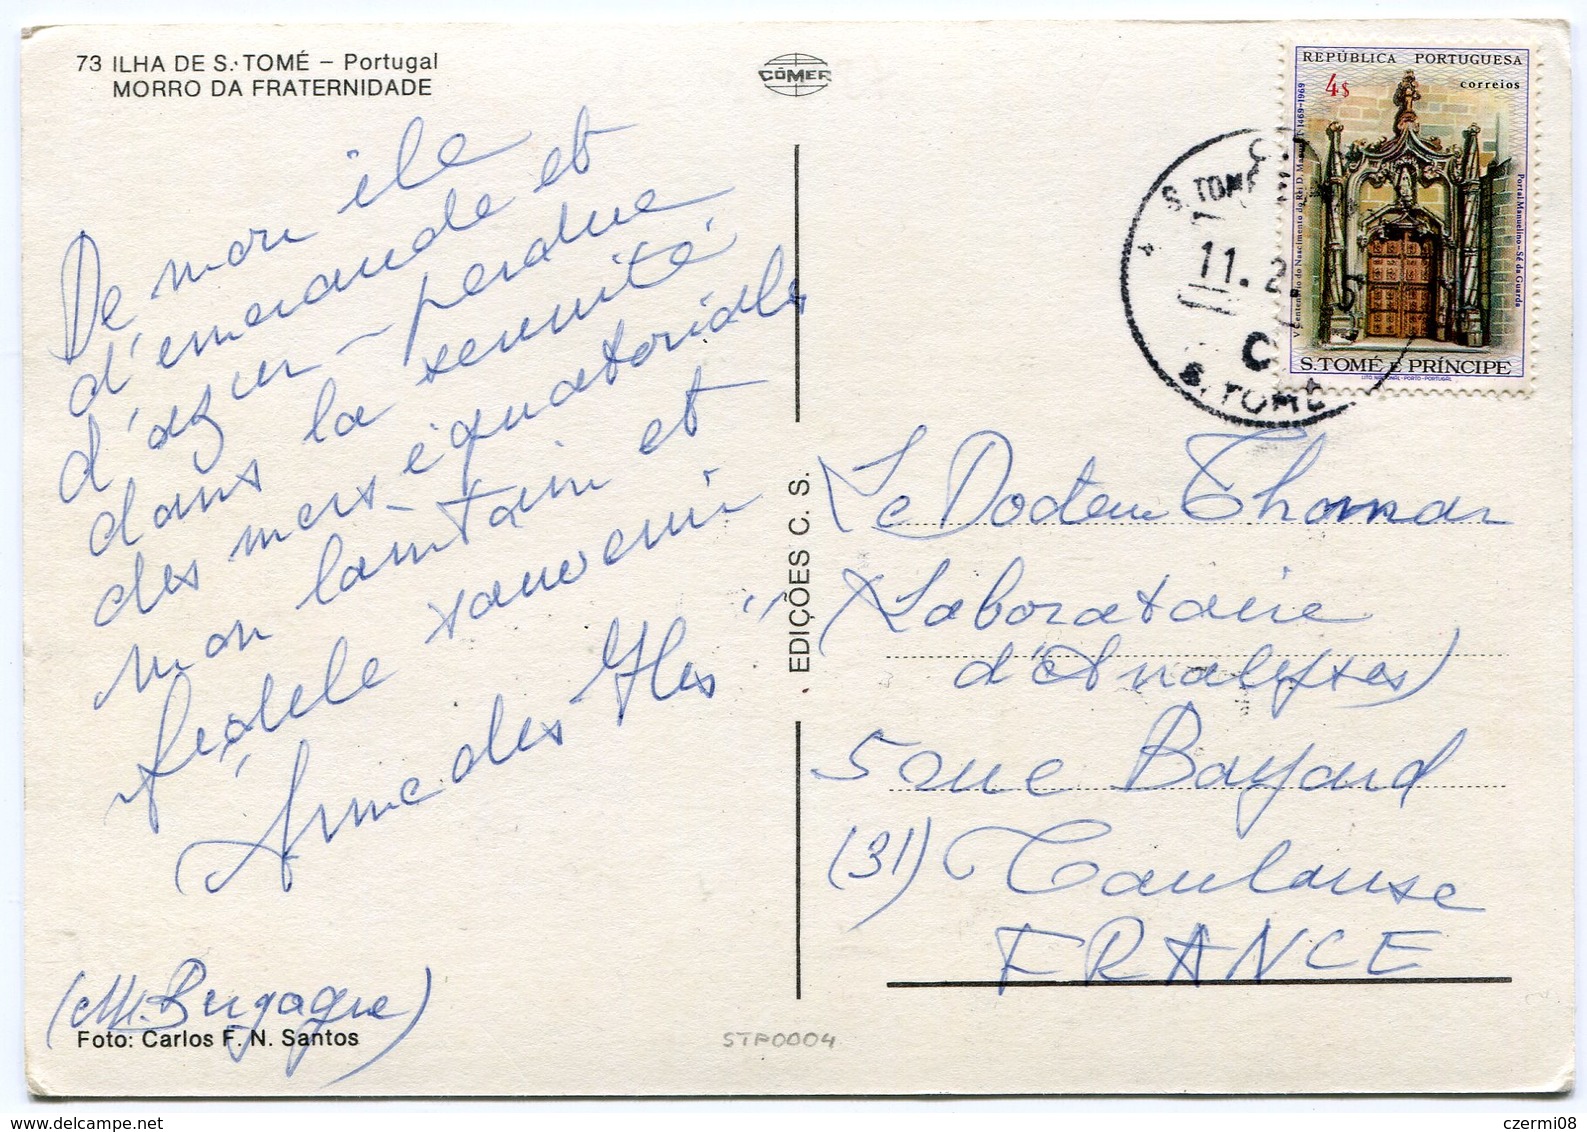 73 ILHA DE S. TOMÉ – Portugal
MORRO DA FRATERNIDADE
CÓMER
De mon ile
d'emeraude et
d'azur – perdue
dans la serenité
des mers équatoriales
mon lointain et
fidèle souvenir
Ame des Iles
(M. Brigague)
Foto: Carlos F. N. Santos
EDIÇÕES C. S.
STP0004
REPÚBLICA PORTUGUESA
4$ correios
V Centenário do Nascimento do Rei D. Manuel I 1469-1969
Portal Manuelino – Sé da Guarda
S. TOMÉ E PRÍNCIPE
LITO NACIONAL - PORTO - PORTUGAL
S. TOMÉ
11. 2.
S. TOMÉ
Le Docteur Thomas
(Laboratoire
d'Analyses)
5 rue Bayard
(31) Toulouse
FRANCE
czermi08